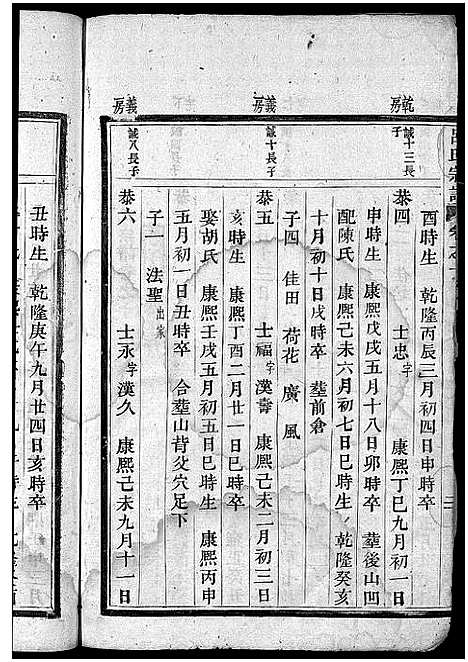 酉時生　乾隆丙辰三月初四日申時卒
乾房
誠十三長子
恭四　士忠字　康熙丁巳九月初一日
申時生　康熙戊戌五月十八日卯時卒　塟後山凹
配陳氏　康熙己未六月初七日巳時生　乾隆癸亥
十月初十日戌時卒　塟前倉
子四　佳田　荷花　廣　風
義房
誠十長子
恭五　士福字漢壽　康熙己未二月初三日
亥時生　康熙丁酉二月廿一日亥時卒
娶胡氏　康熙壬戌五月初五日巳時生　康熙丙申
五月初一日丑時卒　合塟山背父穴足下
子一　法聖出家
義房
誠八長子
恭六　士永字漢久　康熙己未九月十一日
丑時生　乾隆庚午九月廿四日亥時卒